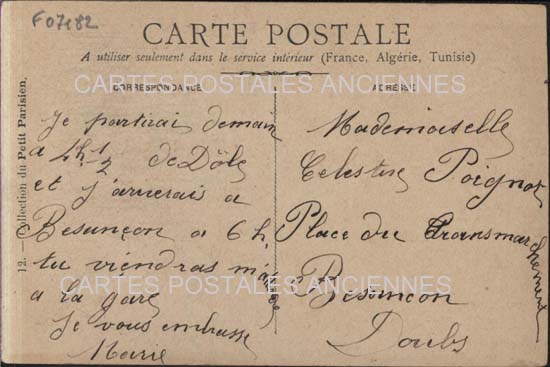 F07482
CARTE POSTALE
A utiliser seulement dans le service intérieur (France, Algérie, Tunisie)
CARTES POSTALES ANCIENNES
CORRESPONDANCE
ADRESSE
Je partirai demain
a 4h 1/2 de Dôle
et j'arriverais a
Besançon a 6 h,
tu viendras
a la gare
Je vous embrasse
Marie
Mademoiselle
Celestine Poignot
Place du Transmarchement
Besançon
Doubs
CARTES POSTALES ANCIENNES
12. — Collection du Petit Parisien.